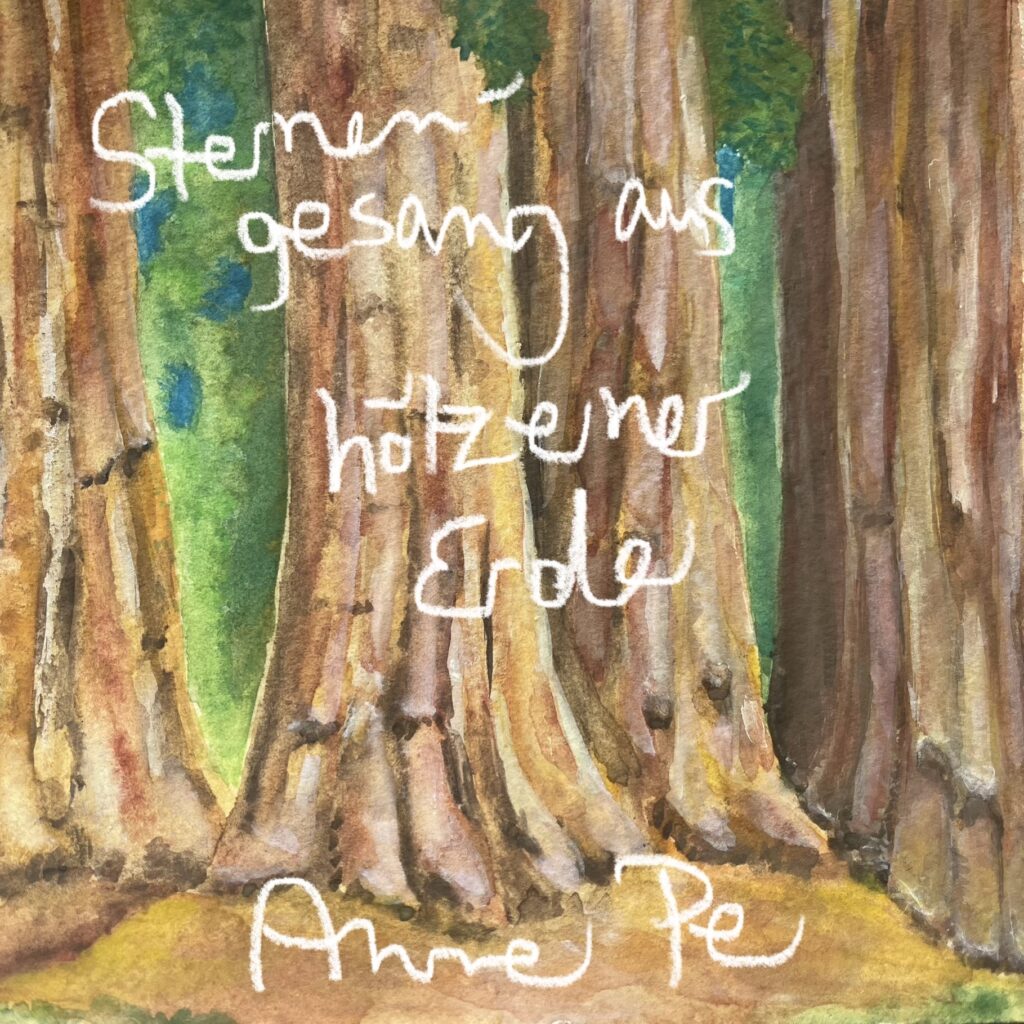 Sternen-
gesang aus
hölzerner
Erde
Anne Pe